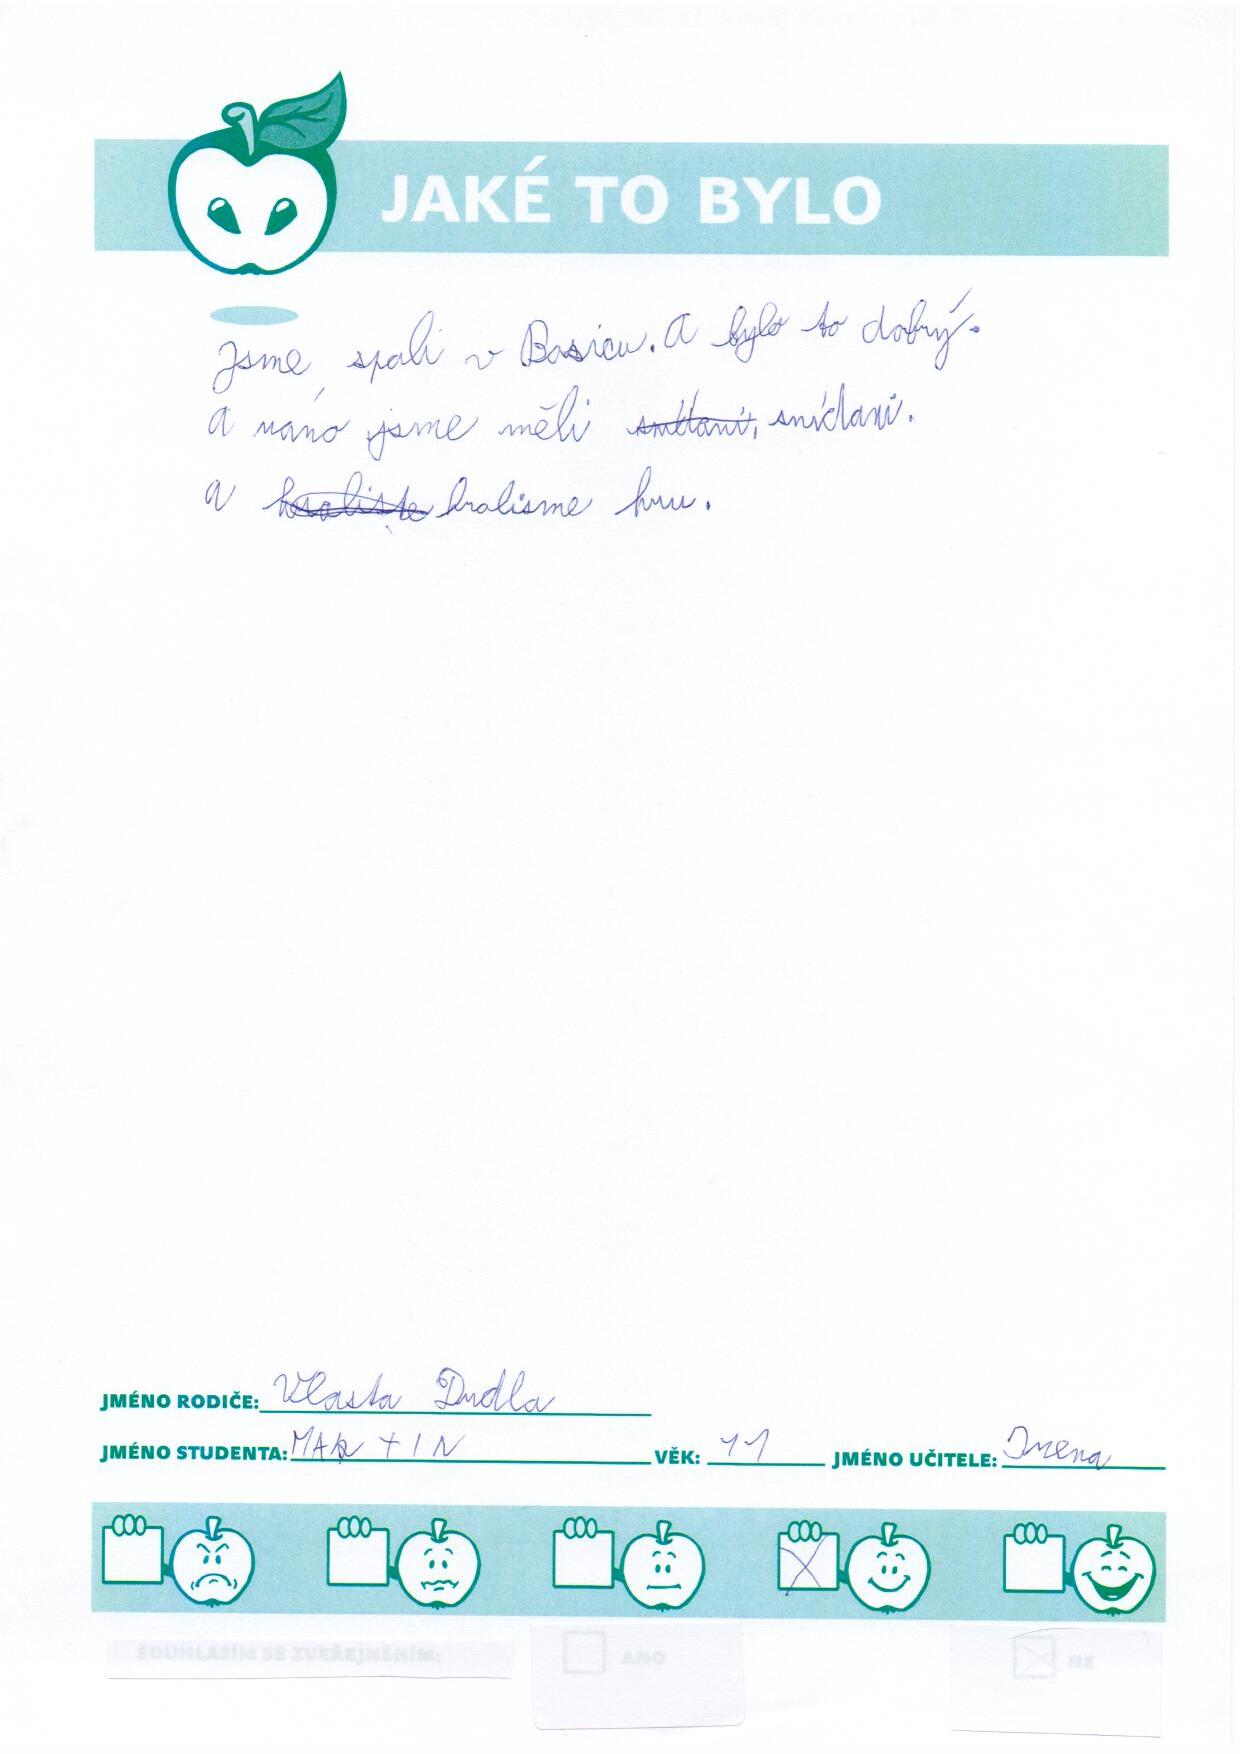 JAKÉ TO BYLO
Jsme spali v Basicu. A bylo to dobrý.
A ráno jsme měli snídani.
A hralisme hru.
JMÉNO RODIČE: Vlasta Dudla
JMÉNO STUDENTA: MARTIN VĚK: 11 JMÉNO UČITELE: Irena
SOUHLASÍM SE ZVEŘEJNĚNÍM: ANO NE